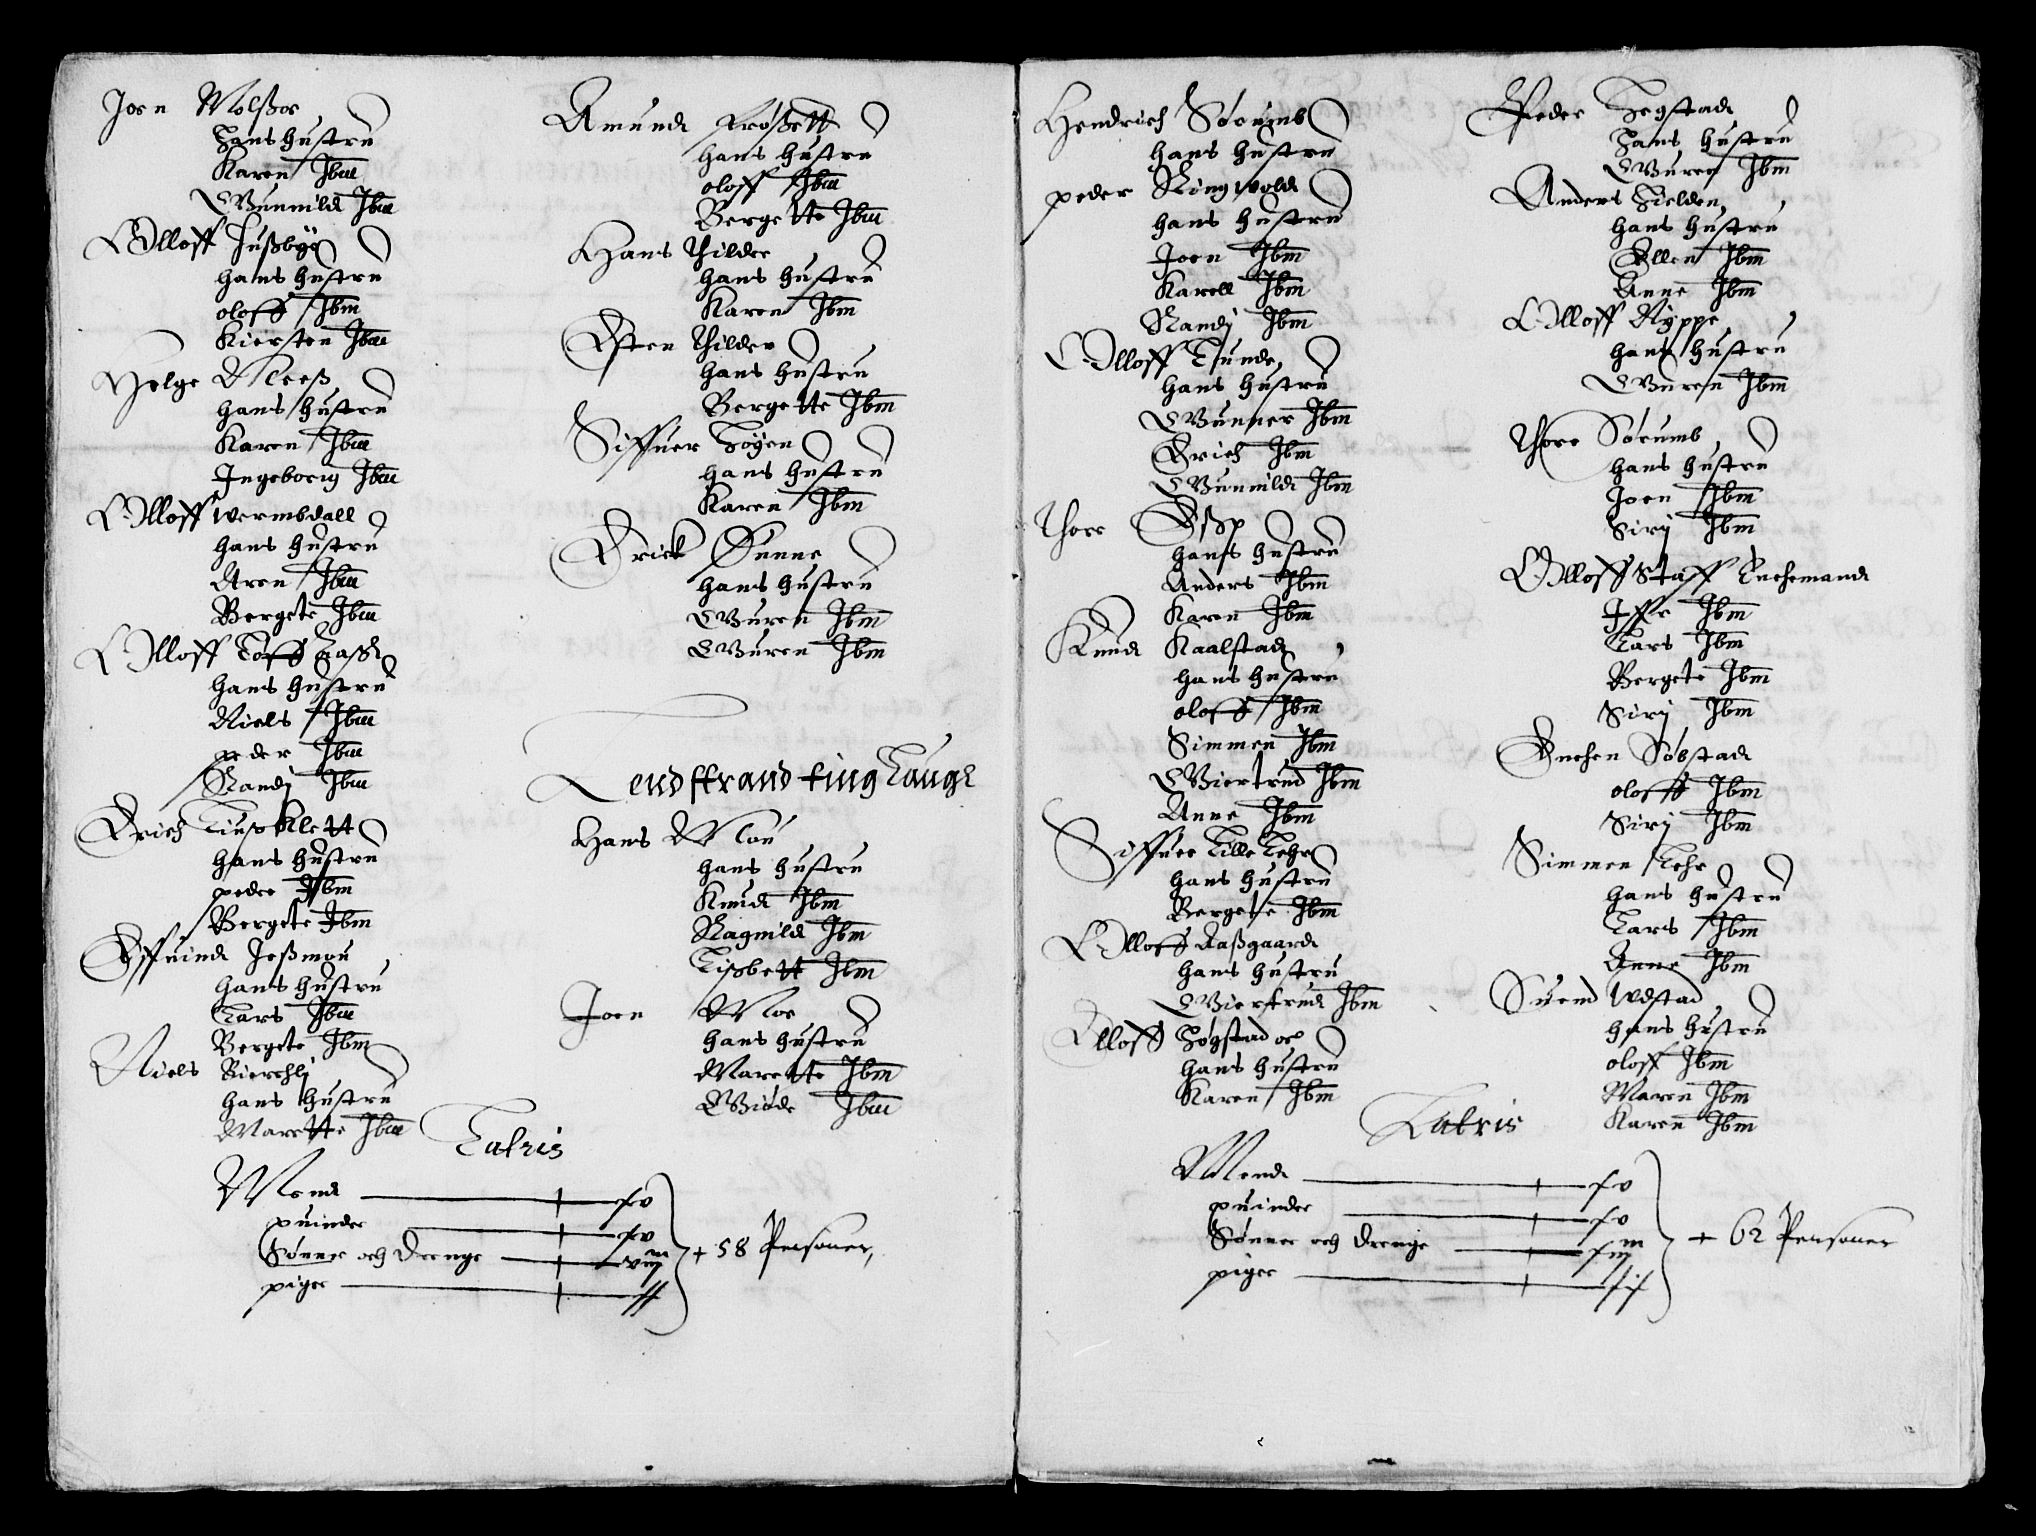 Joen Molßoe
Hans hustru
Karen Ibm
Gunnild Ibm
Olloff Hußbye
hans hustru
oloff Ibm
Kiersten Ibm
Helge Meeß
hans hustru
Karen Ibm
Ingeborig Ibm
Olloff wermbdall
hans hustru
Aren Ibm
Bergete Ibm
Olloff
hans hustru
Niels Ibm
peder Ibm
Randj Ibm
Erich
hans hustru
peder Ibm
Bergete Ibm
Effuind Jeßmou
hans hustru
Lars Ibm
Bergete Ibm
Niels Bierchlj
hans hustru
Marette Ibm
Amund Frøßett
hans hustru
oloff Ibm
Bergette Ibm
Hans Thilder
hans hustru
Karen Ibm
Esten Thilder
hans hustru
Bergette Ibm
Siffuer Høyen
hans hustru
Karen Ibm
Erick Ønne
hans hustru
Guren Ibm
Guren Ibm
Lendstrand tinglaugh
Hans Moe
hans hustru
Knud Ibm
Ragnild Ibm
Lisbett Ibm
Joen Moe
hans hustru
Marette Ibm
Giøde Ibm
Latris
Mend + xv
quinder + xv
Sønner och Drenge + viij
piger + xx
+ 58 Personer,
Hendrich Sørumb
hans hustru
peder Ringwold
hans hustru
Joen Ibm
Karell Ibm
Randj Ibm
Olloff Lunde
hans hustru
Gunner Ibm
Erich Ibm
Gunnild Ibm
Thore Eßp
hans hustru
Anders Ibm
Karen Ibm
Knud Kaalstad
hans hustru
oloff Ibm
Simmen Ibm
Giertrud Ibm
Anne Ibm
Siffuer Lille Lehr
hans hustru
Bergete Ibm
Olloff Aaßgaard
hans hustru
Giertrud Ibm
Olloff Høgstad oc
hans hustru
Karen Ibm
Peder Hegstad
Hans hustru
Guren Ibm
Anders Fielden
hans hustru
Ellen Ibm
Anne Ibm
Olloff Rype
hans hustru
Guren Ibm
Thore Sørumb
hans hustru
Joen Ibm
Sirj Ibm
Olloff Staff Enchemand
Iffr Ibm
Lars Ibm
Bergete Ibm
Sirj Ibm
Enchen Søbstad
oloff Ibm
Sirj Ibm
Simmen Lehr
hans hustru
Lars Ibm
Anne Ibm
Suend Udstad
hans hustru
oloff Ibm
Maren Ibm
Karen Ibm
Latris
Mend + xv
quinder + xv
Sønner och Drenge + xiij
piger + xix
+ 62 Personer